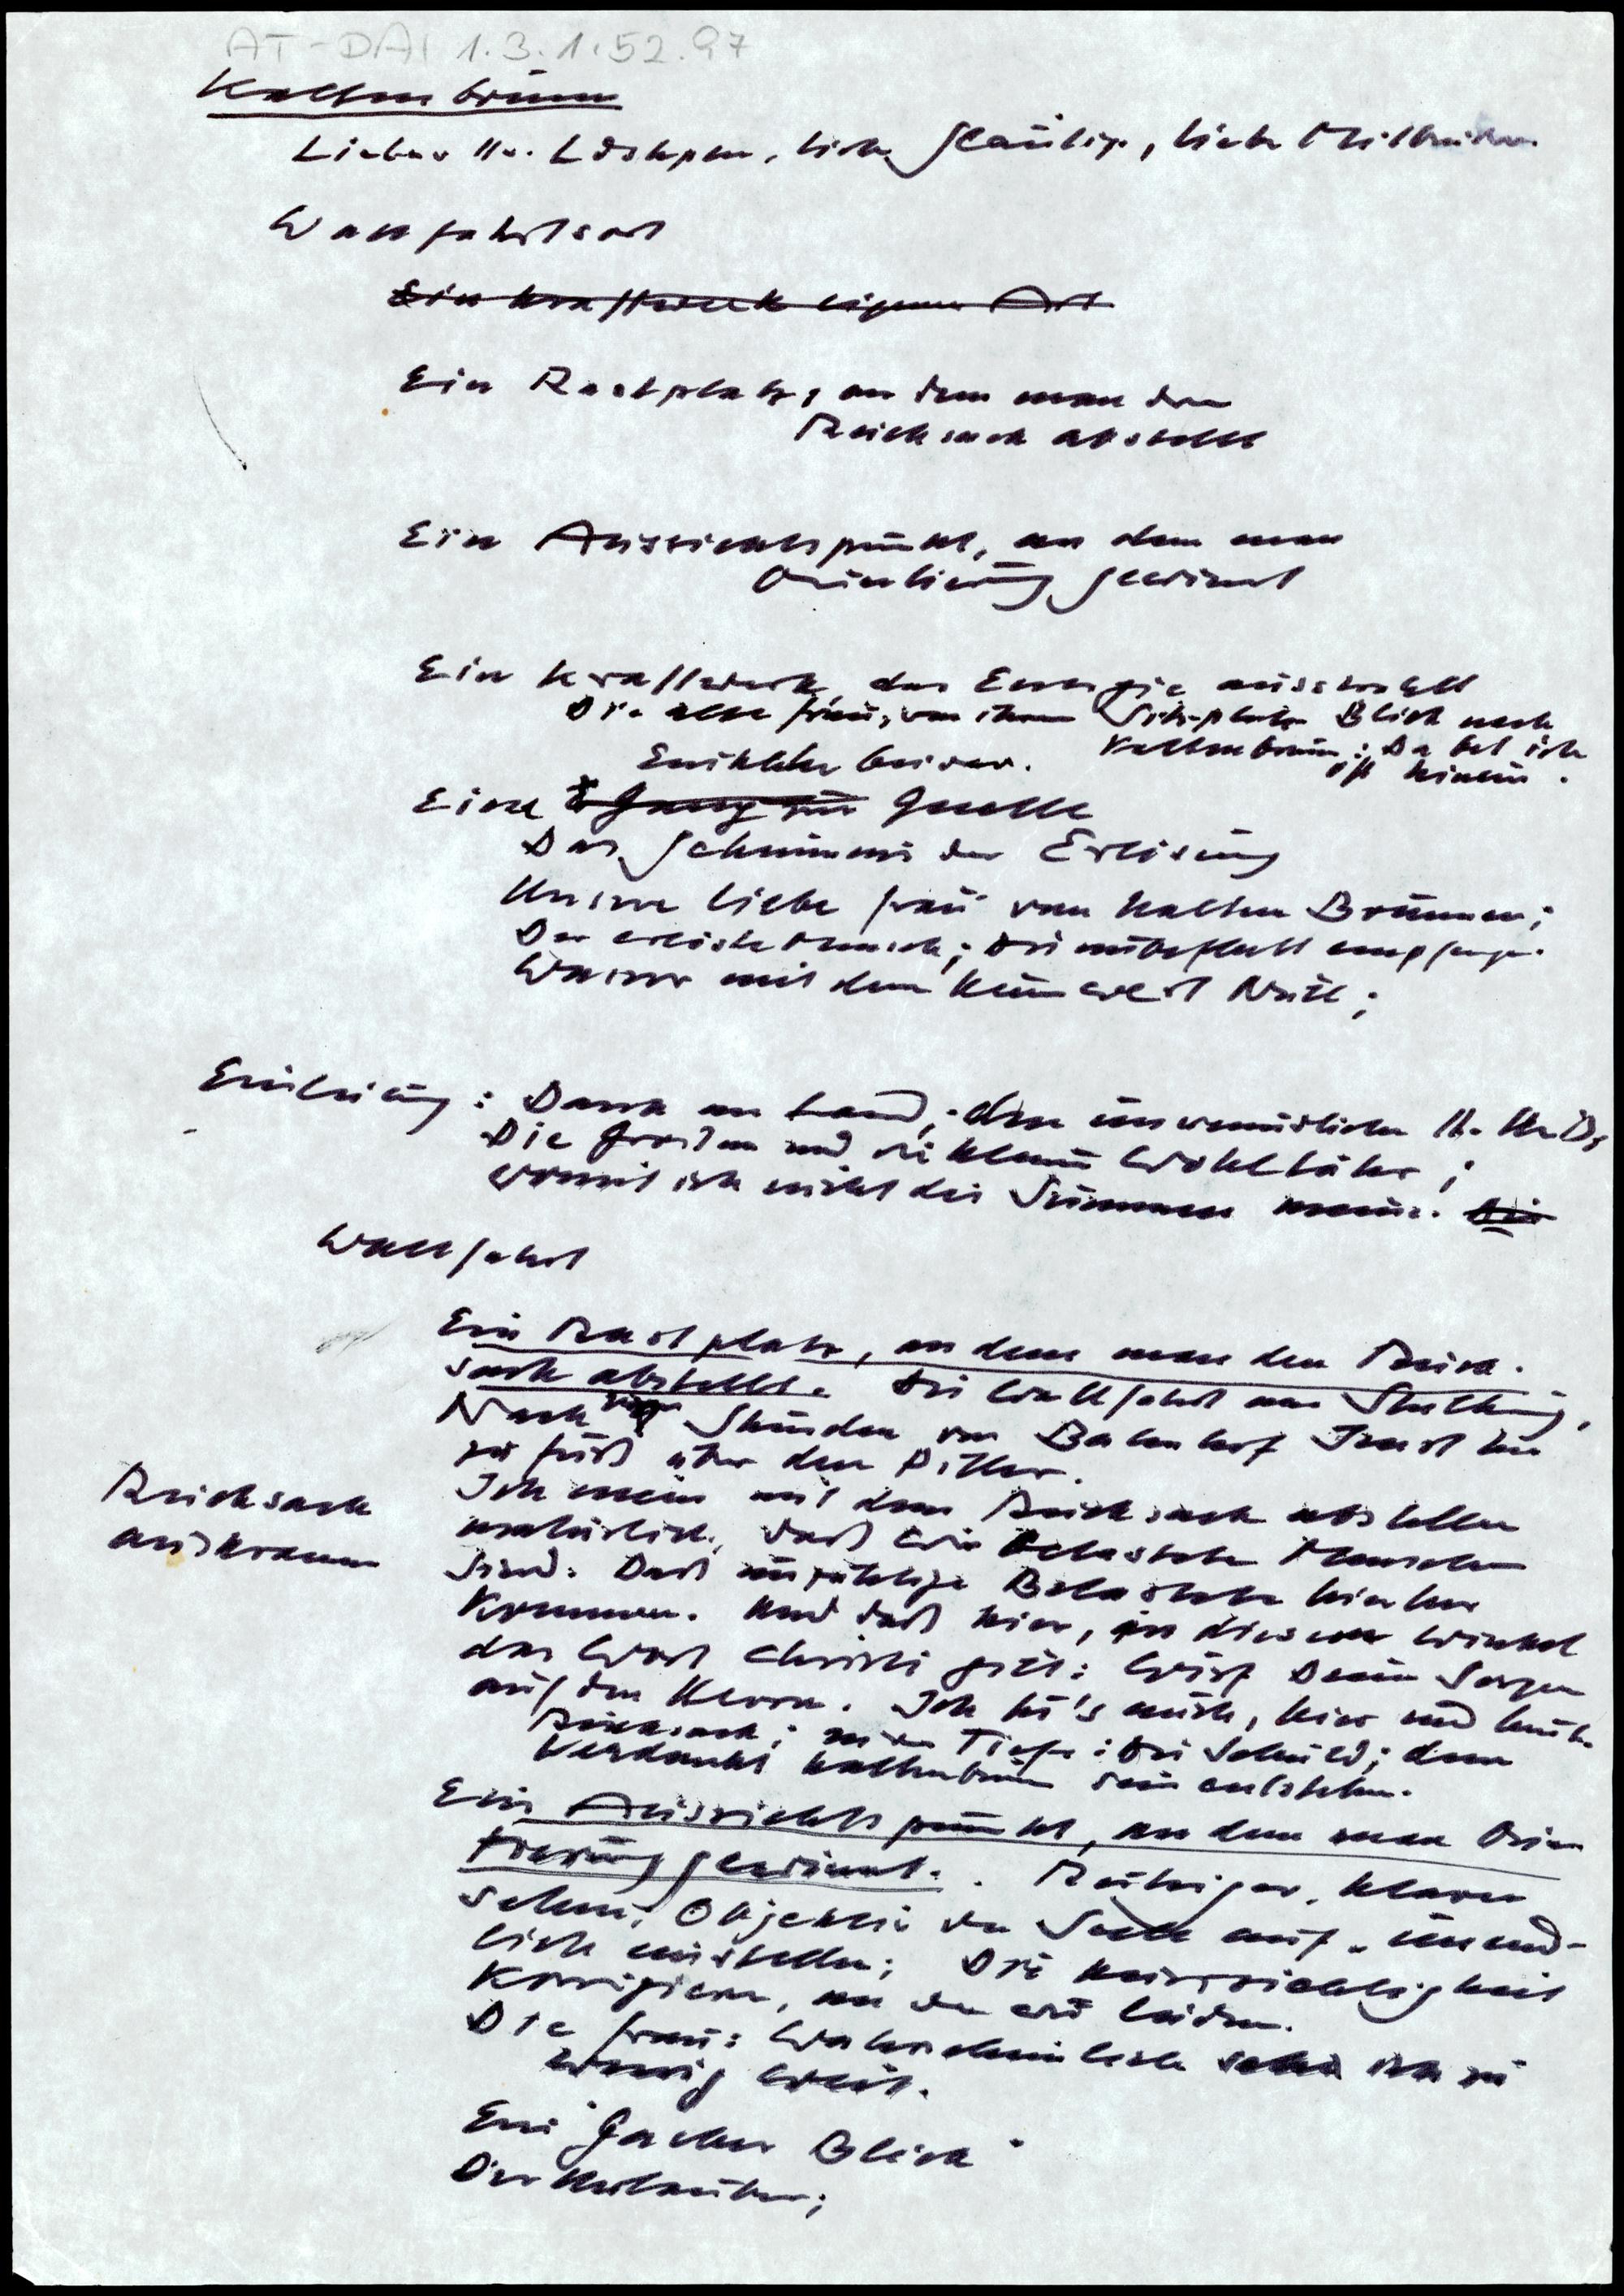 AT-DAI 1.3.1.52.97
Kaltenbrunn
Lieber H. , liebe Gläubige, liebe Mitbrüder
Wallfahrtsort
Ein Kraftwerk eigener Art
Ein Rastplatz, an dem man den
Rucksack abstellt
Ein Aussichtspunkt, an dem man
Orientierung gewinnt
Ein Kraftwerk, das Energie ausstrahlt
Die alte Frau, von ihrem Sitzplatz Blick nach
Kaltenbrunn: Da bet ich
oft hinein.
Eine Quelle
Das Geheimnis der Erlösung
Unsere liebe Frau vom kalten Brunnen;
Der erlöste Mensch; die unbefleckt empfangene
Wasser mit dem Keimwert Null;
Einleitung: Dank an Land, den unermüdlichen H.
Die großen und die kleinen Wohltäter;
womit ich nicht die Summen meine. Die
Wallfahrt
Ein Rastplatz, an dem man den Ruck-
sack abstellt. Die Wallfahrt
Nach Stunden vom Bahnhof Imst her
zu Fuß über den Piller.
Ich meine mit dem Rucksack abstellen
Rucksack
auskramen
natürlich, daß wir belastete Menschen
sind. Daß unzählige Belastete hierher
kommen. Und daß hier, in diesem Winkel
das Wort Christi gilt: Wirf Deine Sorgen
auf den Herrn. Ich tu's auch, hier und heute.
Rucksack: in der Tiefe: Die Schuld; dem
verdankt Kaltenbrunn sein entstehen.
Ein Aussichtspunkt, an dem man Orien
tierung gewinnt. Ruhiger, klarer
sehen, Objektiv der Seele auf „unend-
lich einstellen; Die Kurzsichtigkeit
korrigieren, an der wir leiden.
Die Frau: Wahrscheinlich sehe ich zu
wenig weit.
Ein "Gacher Blick"
Der Urlauber;